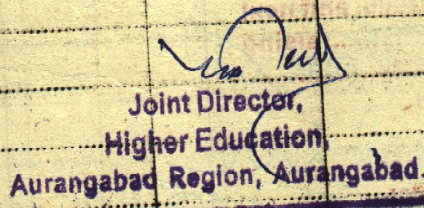 Joint Director,
Higher Education,
Aurangabad Region, Aurangabad.